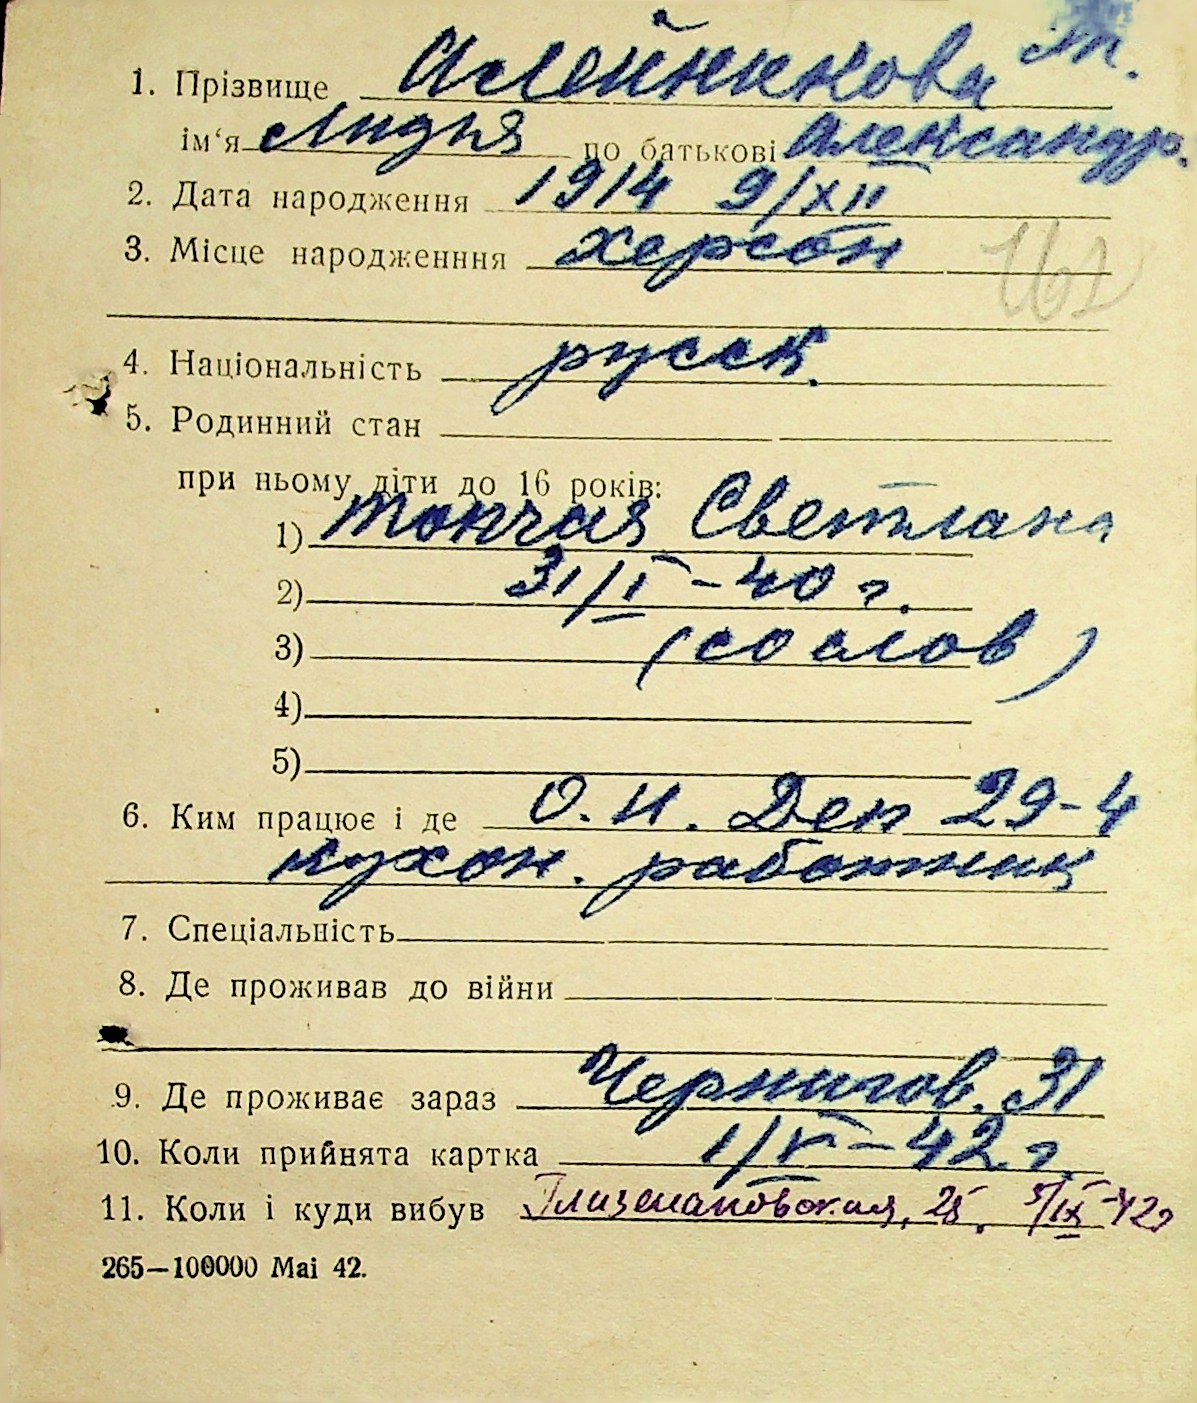 1. Прізвище Алейникова М.
ім‘я Лидия по батькові Александр.
2. Дата народження 1914 9/XII
3. Місце народженння Херсон
162
4. Національність русск.
5. Родинний стан
при ньому діти до 16 років:
1) Тончая Светлана
2) 31/I - 40 г.
3) (со слов)
4)
5)
6. Ким працює і де О. И. Деп 29-4
кухон. работниц
7. Спеціальність
8. Де проживав до війни
9. Де проживає зараз Чернигов. 31
10. Коли прийнята картка 1/V - 42 г.
11. Коли і куди вибув 25. 5/IX - 42г
265—100000 Mai 42.